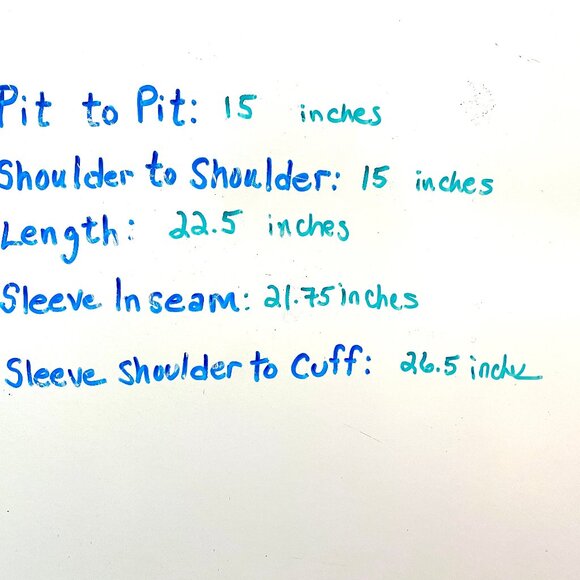 Pit to Pit: 15 inches
Shoulder to Shoulder: 15 inches
Length: 22.5 inches
Sleeve Inseam: 21.75 inches
Sleeve Shoulder to Cuff: 26.5 inches